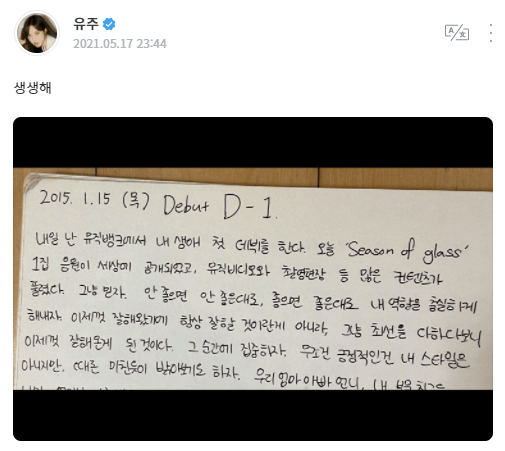 유주
2021.05.17 23:44
생생해
2015. 1.15 (목) Debut D-1.
내일 난 뮤직뱅크에서 내 생애 첫 데뷔를 한다. 오늘 'Season of glass'
1집 음원이 세상에 공개되었고, 뮤직비디오와 촬영현장 등 많은 컨텐츠가
풀렸다. 그냥 믿자. 안 좋으면 안 좋은대로, 좋으면 좋은대로 내 역량을 충실하게
해내자. 이제껏 잘해왔기에 항상 잘할 것이란게 아니라, 그냥 최선을 다하다보니
이제껏 잘해온게 된 것이다. 그 순간에 집중하자. 무조건 긍정적인건 내 스타일은
아니지만, 때론 미친듯이 밝아보기도 하자. 우리 엄마 아빠 언니, 내